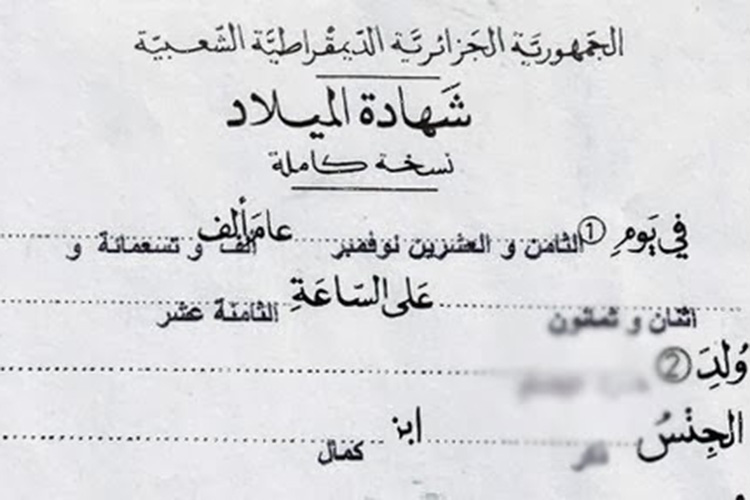 الجمهورية الجزائرية الديمقراطية الشعبية
شهادة الميلاد
نسخة كاملة
في يوم ① الثامن و العشرين نوفمبر عام ألف الف و تسعمائة و
اثنان و ثمانون على الساعة الثامنة عشر
وُلِدَ ②
الجنس ذكر ابن كمال